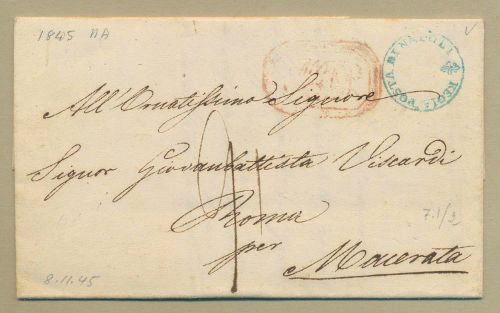 1845 NA
REGIA POSTA DI NAPOLI
All'Ornatissimo Signore
Signor Giovanbattista Viscardi
Roma
per
Macerata
7.1/2
8.11.45